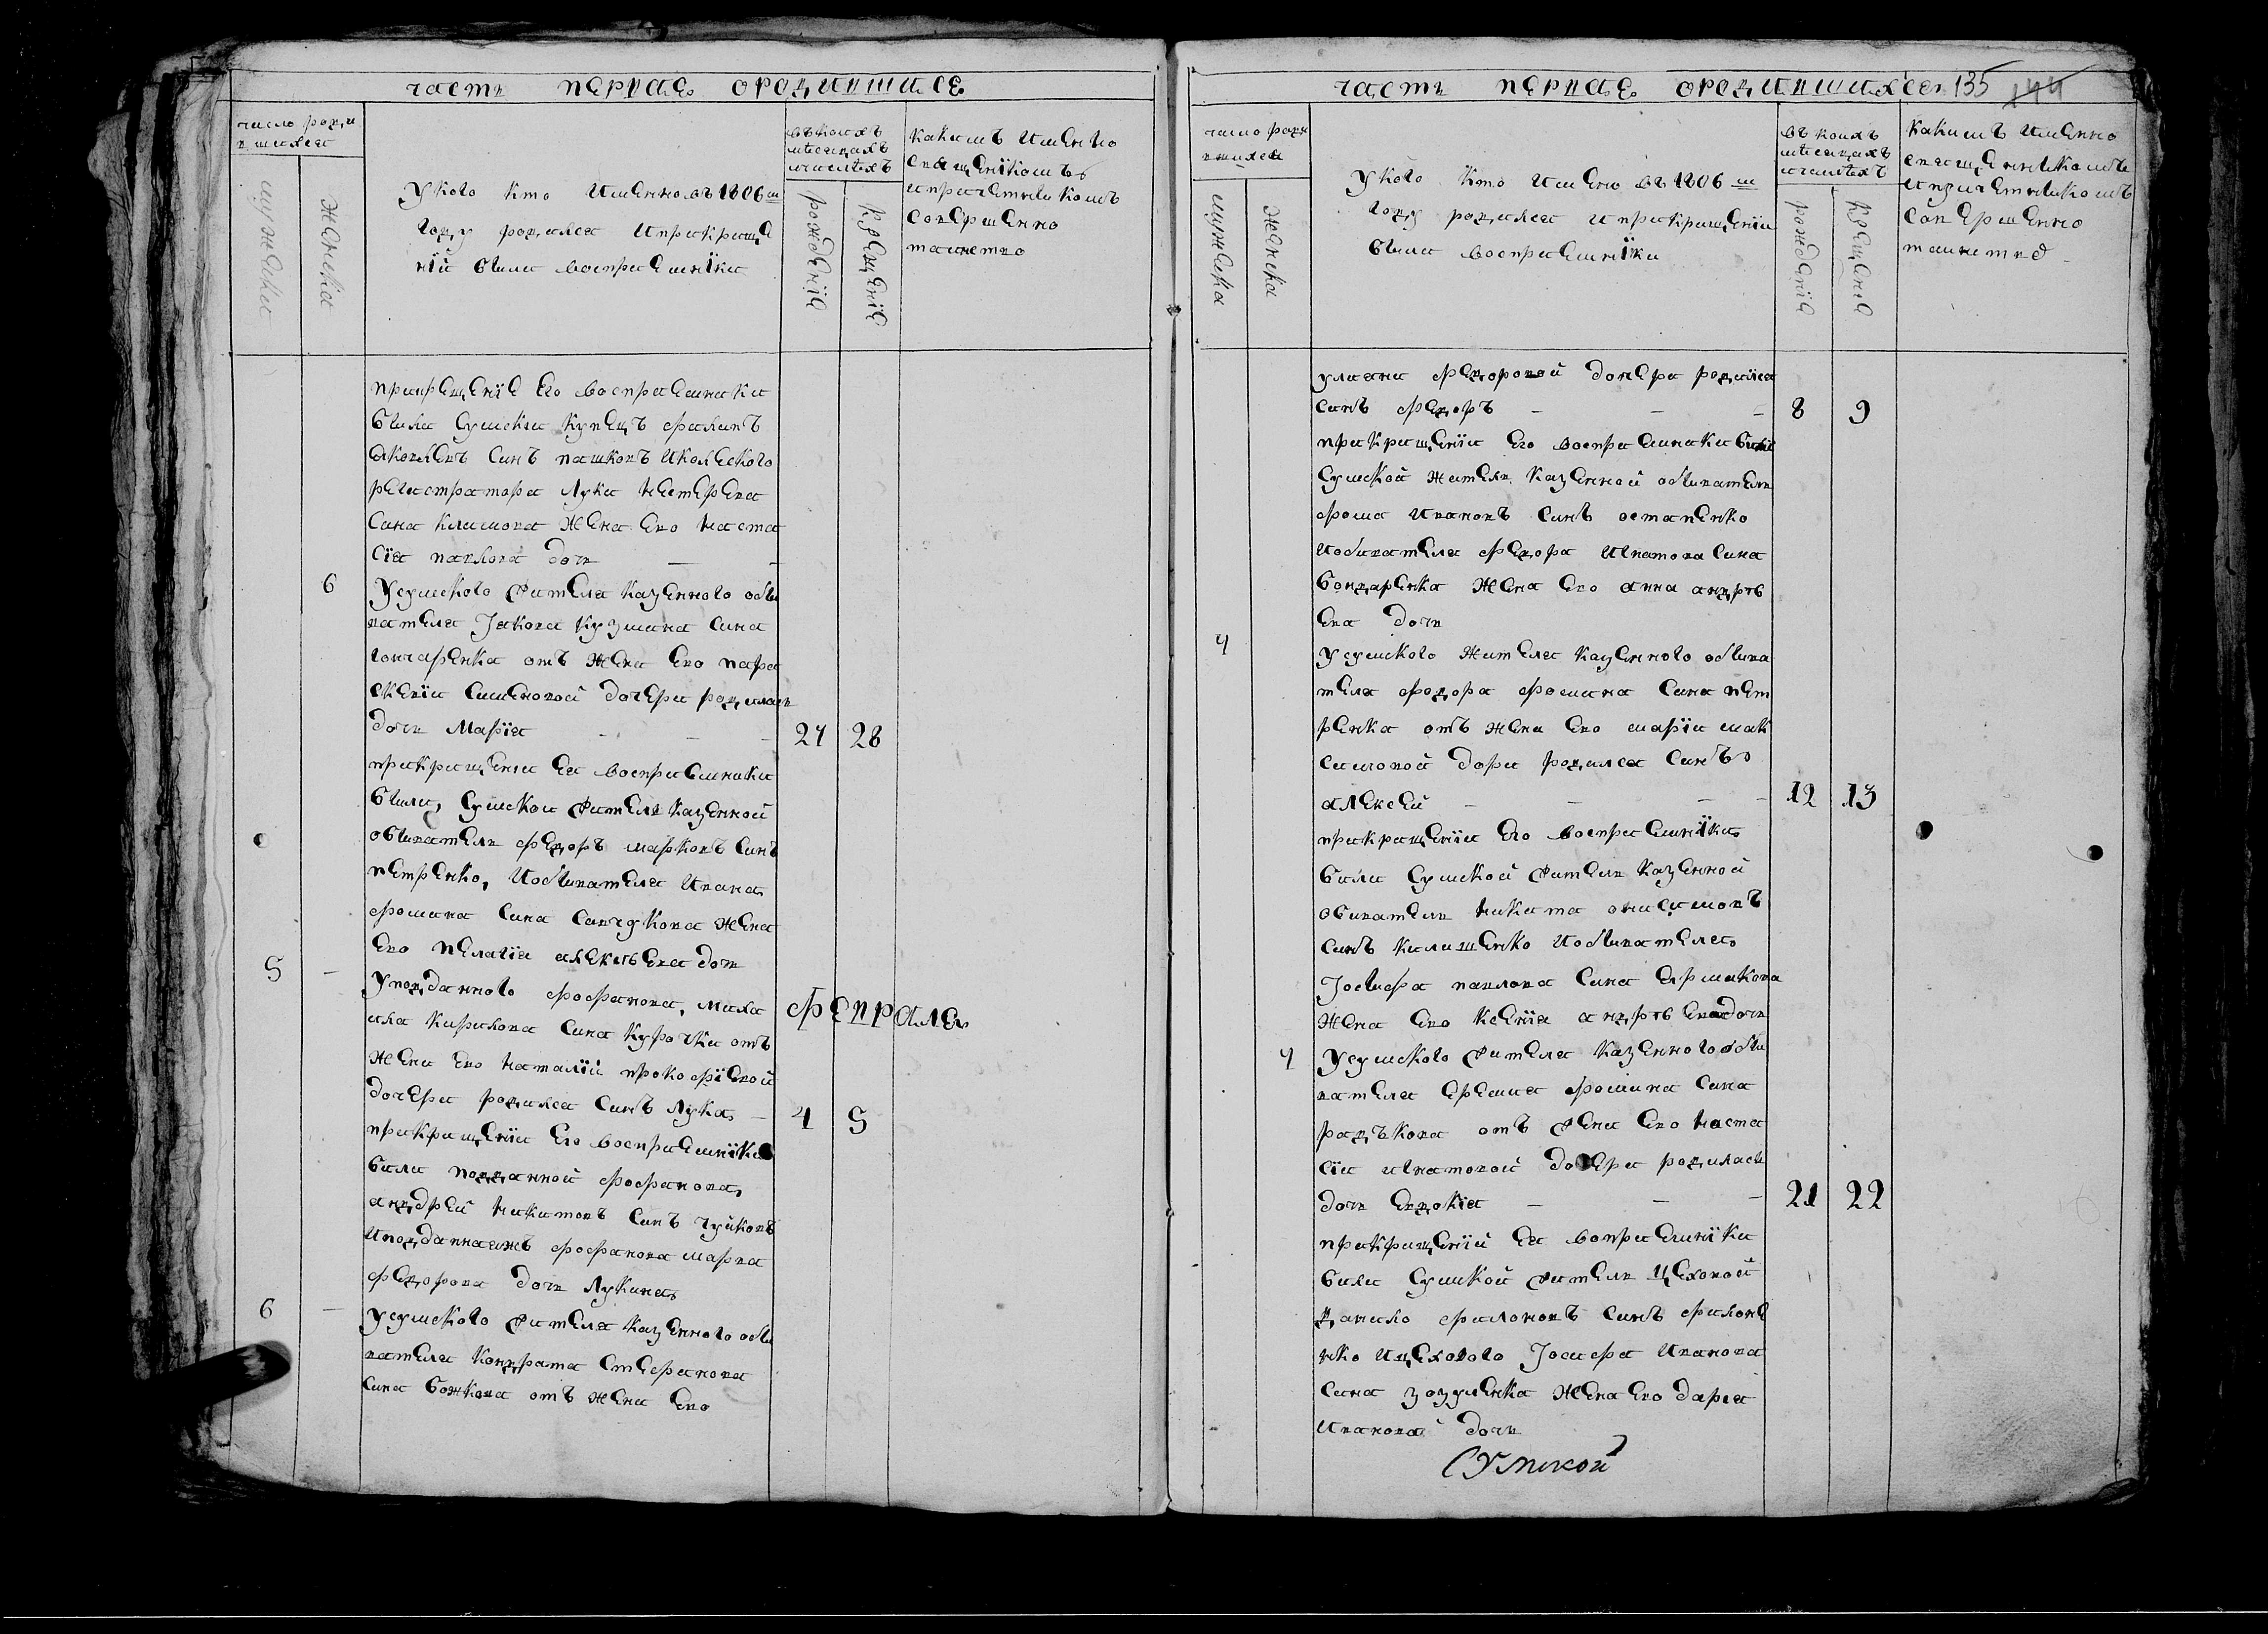 часть первая о родившися
число роди
вшихся
мужеска
женска
У кого кто именно въ 1806 м
году родился и прикреще
нїи были восприемнїки
въ коихъ
мѣсяцахъ
и числѣхъ
рожденїе
крещенїе
какимъ именно
священїкомъ
и причетникомъ
совершенно
таинство
прикрещенїе его восприемники
были сумски купецъ филипъ
яковлевъ синъ пашковъ иколеского
регистратора луки нестерева
сина климова жена его наста
сїя павлова дочь
6
У сумского жителя казенного обы
вателя Іакова кузмина сина
гончаренка отъ жени его пара
скевїи сименовой дочери родилась
дочь Марїя
27 28
прикрещенїи ея восприемники
были, сумскои житель казенной
обыватель федоръ марковъ синъ
петренко, и обывателя ивана
фомина сина савчукова жена
его пелагїя алексѣева дочь
5
феврале
У подданного фофанова, миха
ила кирилова сина курочки отъ
жени его наталїи прокофїевой
дочери родился синъ лука
4 5
прикрещенїи его восприемнїки
били подданной фофанова
андрей никитовъ синъ чуйковъ
и подданнаяжъ фофанова марва
федорова дочь лукина
6
У сумского жителя казенного обы
вателя кондрата стефанова
сина божкова отъ жени его
часть первая о родившихся 135 144
число роди
вшихся
мужска
женска
У кого кто имено въ 1806 м
году родился и прикрещенїи
были восприемнїки
въ коихъ
мѣсяцахъ
и числѣхъ
рожденїе
крещенїе
какимъ именно
священникомъ
и причетникомъ
совершенно
таинство
улияни федоровой дочери родился
синъ федоръ
8 9
прикрещенїи его восприемники били
сумской житель казенной обыватель
фома ивановъ синъ остапенко
и обивателя федора игнатова сина
бондаренка жена его анна андрѣ
ева дочь
7
У сумского жителя казенного обыва
теля федора фомина сина пет
ренка отъ жени его марїи мак
симовой дори родился синъ
алексей
12 13
прикрещенїи его восприемнїки
били сумской житель казенной
обиватель никита онисимовъ
синъ килишенко и обывателя
Іосифа павлова сина ермакова
жена его ксенїя андрѣева дочь
7
У сумского жителя казенного обы
вателя еремия фомина сина
радъкова отъ жени его наста
сїи игнатовой дочери родилась
дочь евдокїя
21 22
прикрещенїи ея вопри емнїки
били сумской житель цеховой
данило филоновъ синъ филоне
нко и цехового Іосифа иванова
сина зозуленка жена его дария
иванова дочь
Сумской